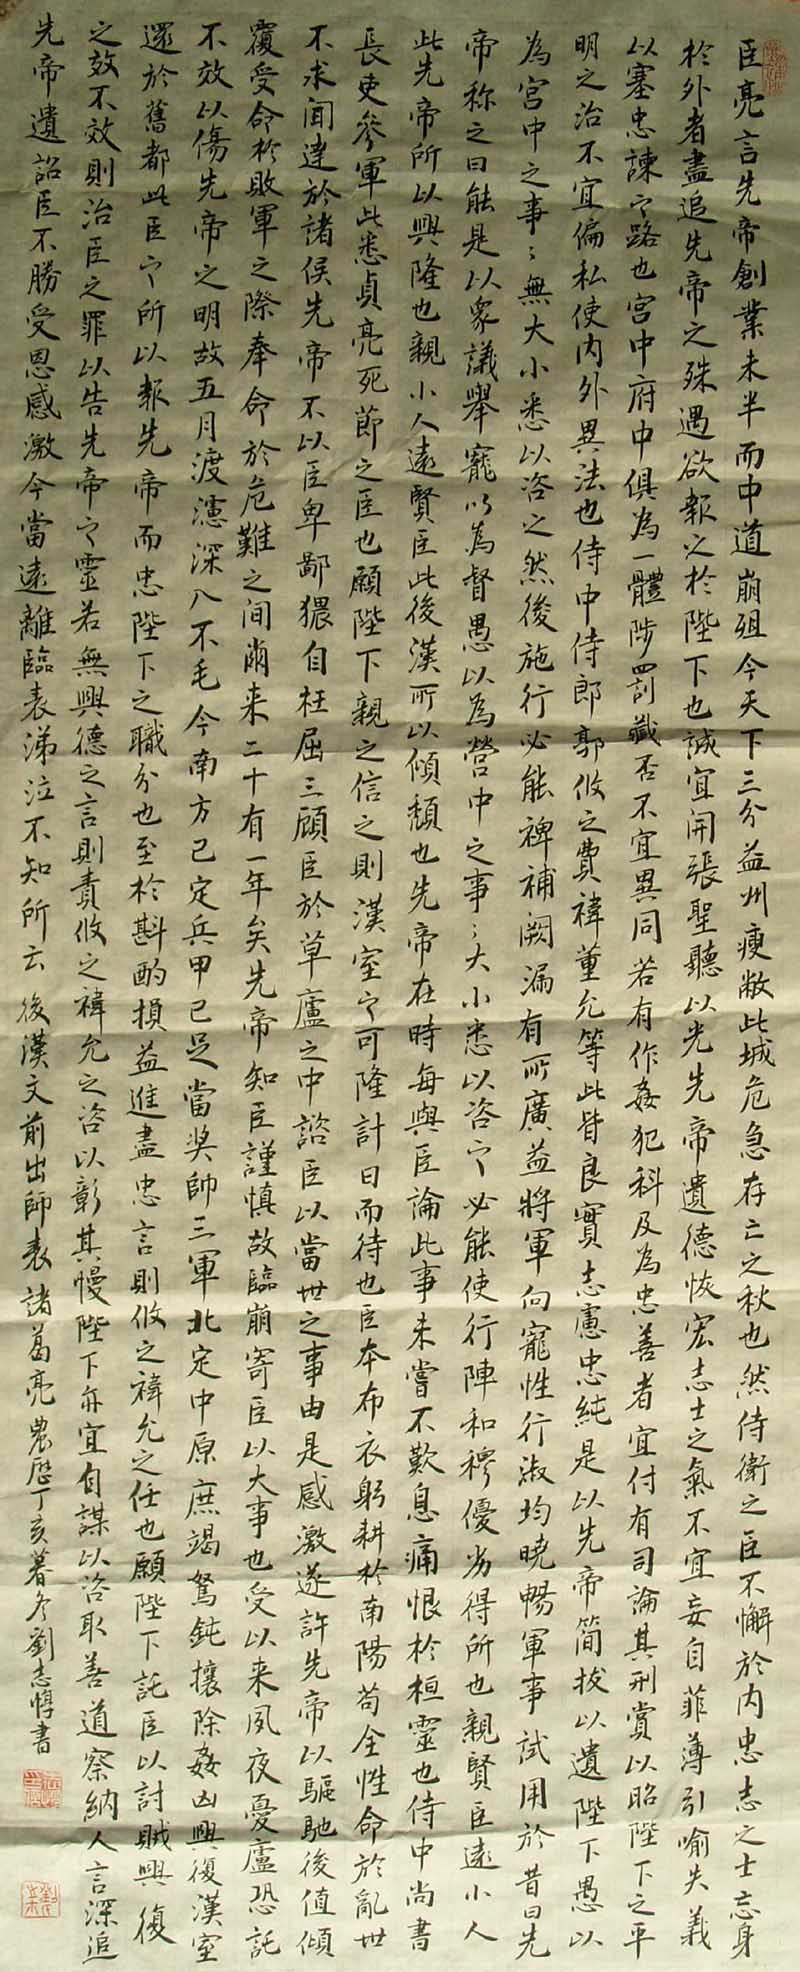 臣亮言先帝創業未半而中道崩殂今天下三分益州疲敝此城危急存亡之秋也然侍衛之臣不懈於内忠志之士忘身
於外者盡追先帝之殊遇欲報之於陛下也誠宜開張聖聽以光先帝遺德恢宏志士之氣不宜妄自菲薄引喻失義
以塞忠諫之路也宫中府中俱為一體陟罰臧否不宜異同若有作姦犯科及為忠善者宜付有司論其刑賞以昭陛下之平
明之治不宜偏私使内外異法也侍中侍郎郭攸之費禕董允等此皆良實志慮忠純是以先帝簡拔以遺陛下愚以
為宫中之事〻無大小悉以咨之然後施行必能裨補闕漏有所廣益將軍向寵性行淑均曉暢軍事試用於昔日先
帝称之曰能是以衆議舉寵以為督愚以為營中之事〻大小悉以咨之必能使行陣和穆優劣得所也親賢臣遠小人
此先帝所以興隆也親小人遠賢臣此後漢所以傾頽也先帝在時每與臣論此事未嘗不歎息痛恨於桓靈也侍中尚書
長吏參軍此悉貞亮死節之臣也願陛下親之信之則漢室之可隆計日而待也臣本布衣躬耕於南陽苟全性命於亂世
不求聞達於諸侯先帝不以臣卑鄙猥自枉屈三顧臣於草廬之中諮臣以當世之事由是感激遂許先帝以驅馳後值傾
覆受命於敗軍之際奉命於危難之间爾来二十有一年矣先帝知臣謹慎故臨崩寄臣以大事也受以来夙夜憂廬恐託
不效以傷先帝之明故五月渡瀘深入不毛今南方已定兵甲已足當奖帥三軍北定中原庶竭駑鈍攘除姦凶興復漢室
還於舊都此臣之所以報先帝而忠陛下之職分也至於斟酌損益進盡忠言則攸之禕允之任也願陛下託臣以討賊興復
之效不效則治臣之罪以告先帝之靈若無興德之言則責攸之禕允之咨以彰其慢陛下亦宜自謀以咨取善道察納人言深追
先帝遺詔臣不勝受恩感激今當遠離臨表涕泣不知所云後漢文前出師表諸葛亮農历丁亥暮冬劉志惇書